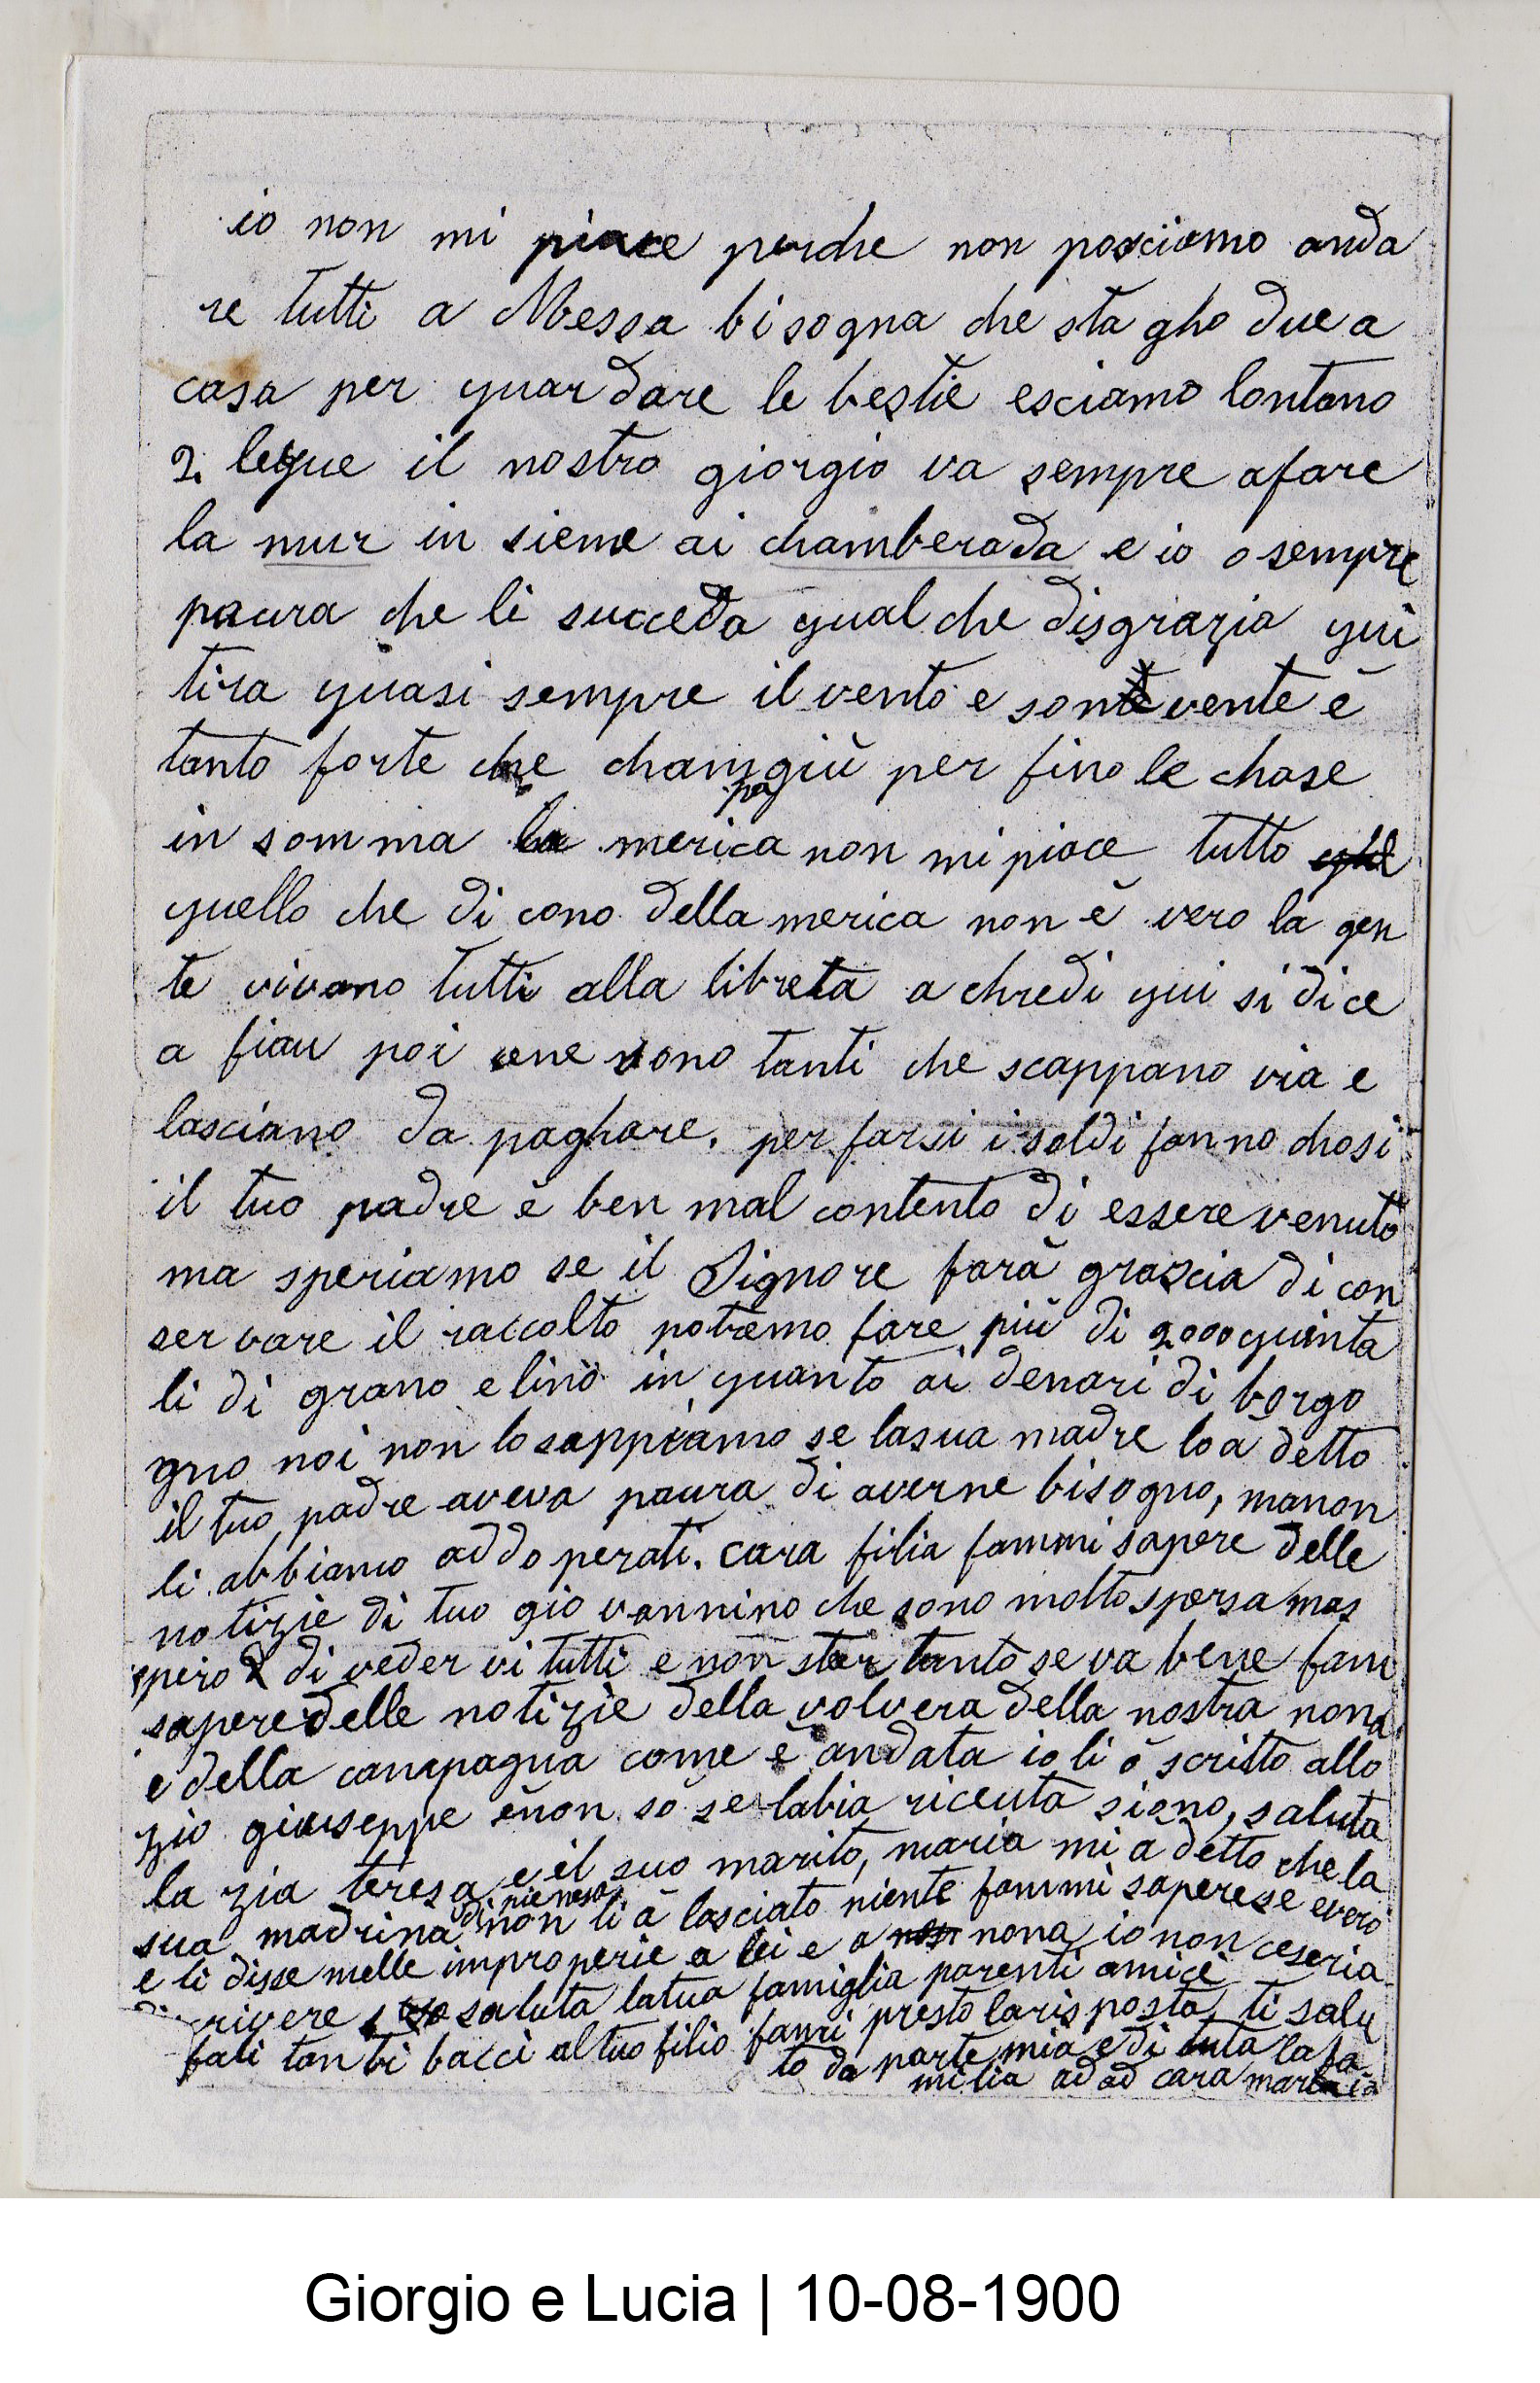 io non mi piace perche non posciamo anda
re tutti a Messa bisogna che sta gho due a
casa per guardare le bestie esciamo lontano
2 legue il nostro giorgio va sempre afare
la mur in sieme ai chamberada e io o sempre
paura che li succeda qual che disgrazia qui
tira quasi sempre il vento e sonte vente è
tanto forte che champagiù per fino le chase
in somma la merica non mi piace tutto
quello che di cono della merica non è vero la gen
te vivono tutti alla libreta a chredi qui si dice
a fiau poi ene sono tanti che scappano via e
lasciano da paghare. per farsi i soldi fanno chosi
il tuo padre è ben mal contento di essere venuto
ma speriamo se il Signore farà grascia di con
servare il raccolto potremo fare più di 2000 quinta
li di grano e lino in quanto ai denari di borgo
gno noi non lo sappiamo se lasua madre loa detto
il tuo padre aveva paura di averne bisogno, manon
li abbiamo addoperati. cara filia fammi sapere delle
notizie di tuo gio vannino che sono molto spersa mas
spero di veder vi tutti e non star tanto se va bene fam
sapere delle notizie della volvera della nostra nona
e della campagna come è andata io li ò scritto allo
zio giuseppe e non so se labia riceuta siono, saluta
la zia teresa e il suo marito, maria mi a detto che la
sua madrina di pienesa non li à lasciato niente fammi sapere se evero
e li disse melle improperie a lei e a nona io non ceseria
scrivere saluta latua famiglia parenti amici
fali tanti bacci al tuo filio fami presto larisposta ti salu
to da parte mia e di tuta la fa
milia ad ad cara maria
Giorgio e Lucia | 10-08-1900